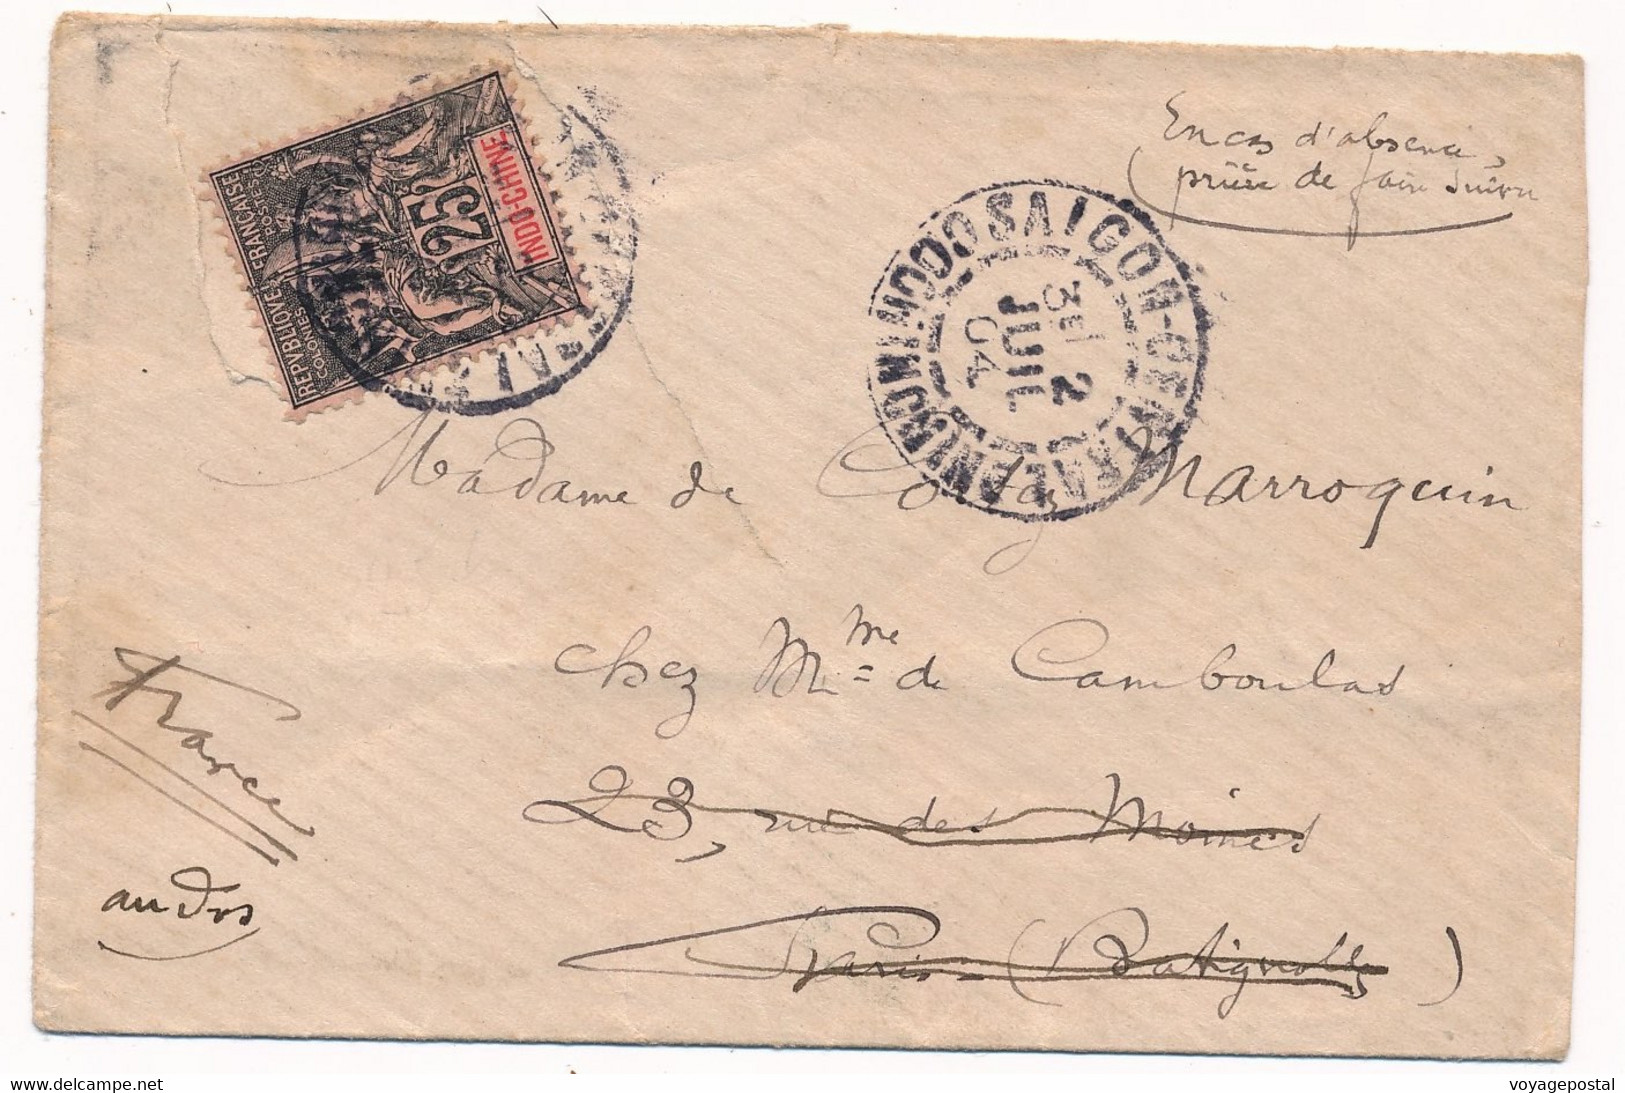 En cas d'absence,
prière de faire suivre
REPVBLIQVE FRANÇAISE
COLONIES POSTES
25
INDO-CHINE
SAIGON-CENTRAL
COCHINCHINE
3E/ 2
JUIL
04
Madame de Marroquin
chez Mme de Camboulas
23, rue des Moines
Paris = (Batignolles)
France
au dos
voyagepostal